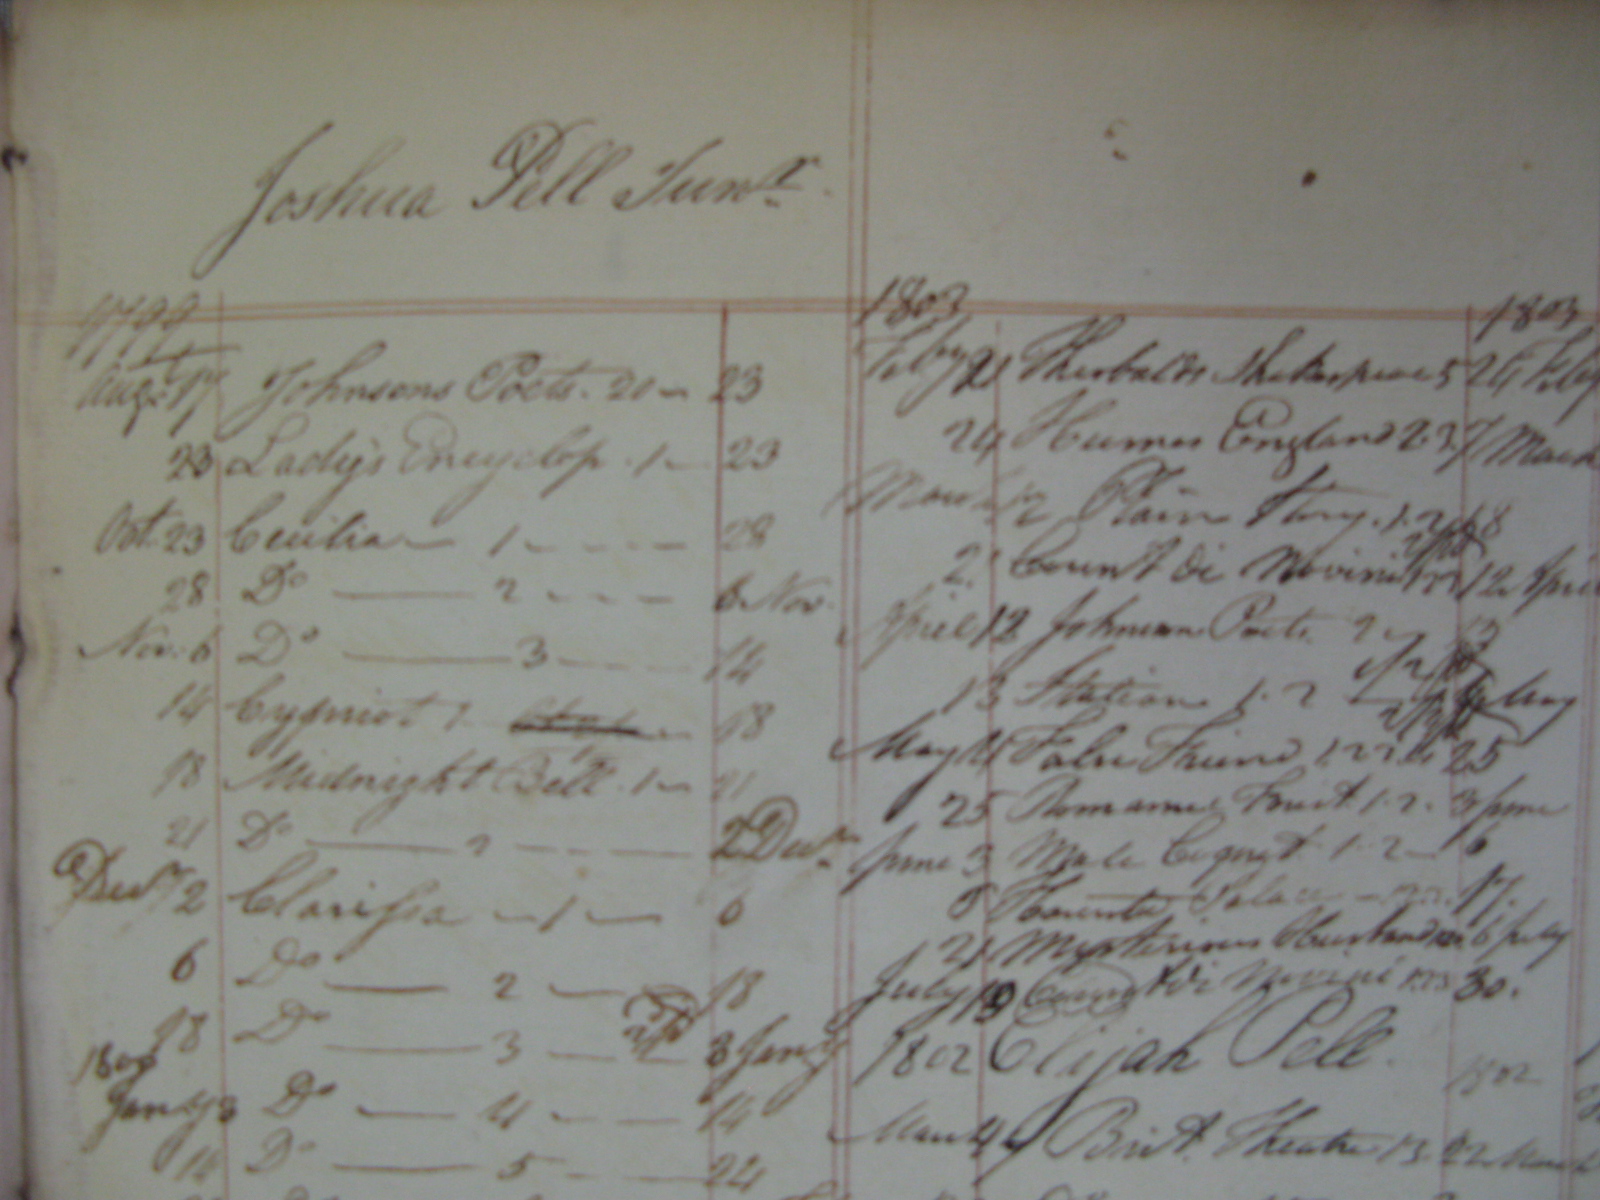 Joshua Pell Junr.
1799
Augt. 17 Johnsons Poets. 20 — 23
23 Lady's Encyclop. 1 — 23
Oct. 23 Cecilia — 1 - - - - 28
28 Do — 2 - - - - 6 Nov.
Nov. 6 Do — 3 - - - - 14
14 Cypriot 1 18
18 Midnight Bell. 1 — 21
21 Do — 2 - - - - 2 Decr.
Decr. 2 Clarissa — 1 — 6
6 Do — 2 — 18
18 Do — 3 — 3 Jany
1800
Jany 3 Do — 4 — 14
14 Do — 5 - — 24
1803 1803
Feby 21 Theobalds Shakespeare 5 24 Feby
24 Humes England 2.3. 7 March
March Plain Story. 1.2 18
2 Count di Novini 12 April
April 12 Johnsons Poets 2 13
13 Station 1.2 May
May 15 False Friend 25
25 Romance 1.2. 3 June
June 3 Male Coquet 1.2 — 6
Palace 17.
21 Mysterious Husband 6 July
July 19 Count di Novini 30.
1802 Elijah Pell. 1802
March 4 Brit. Theatre 13. 22 March